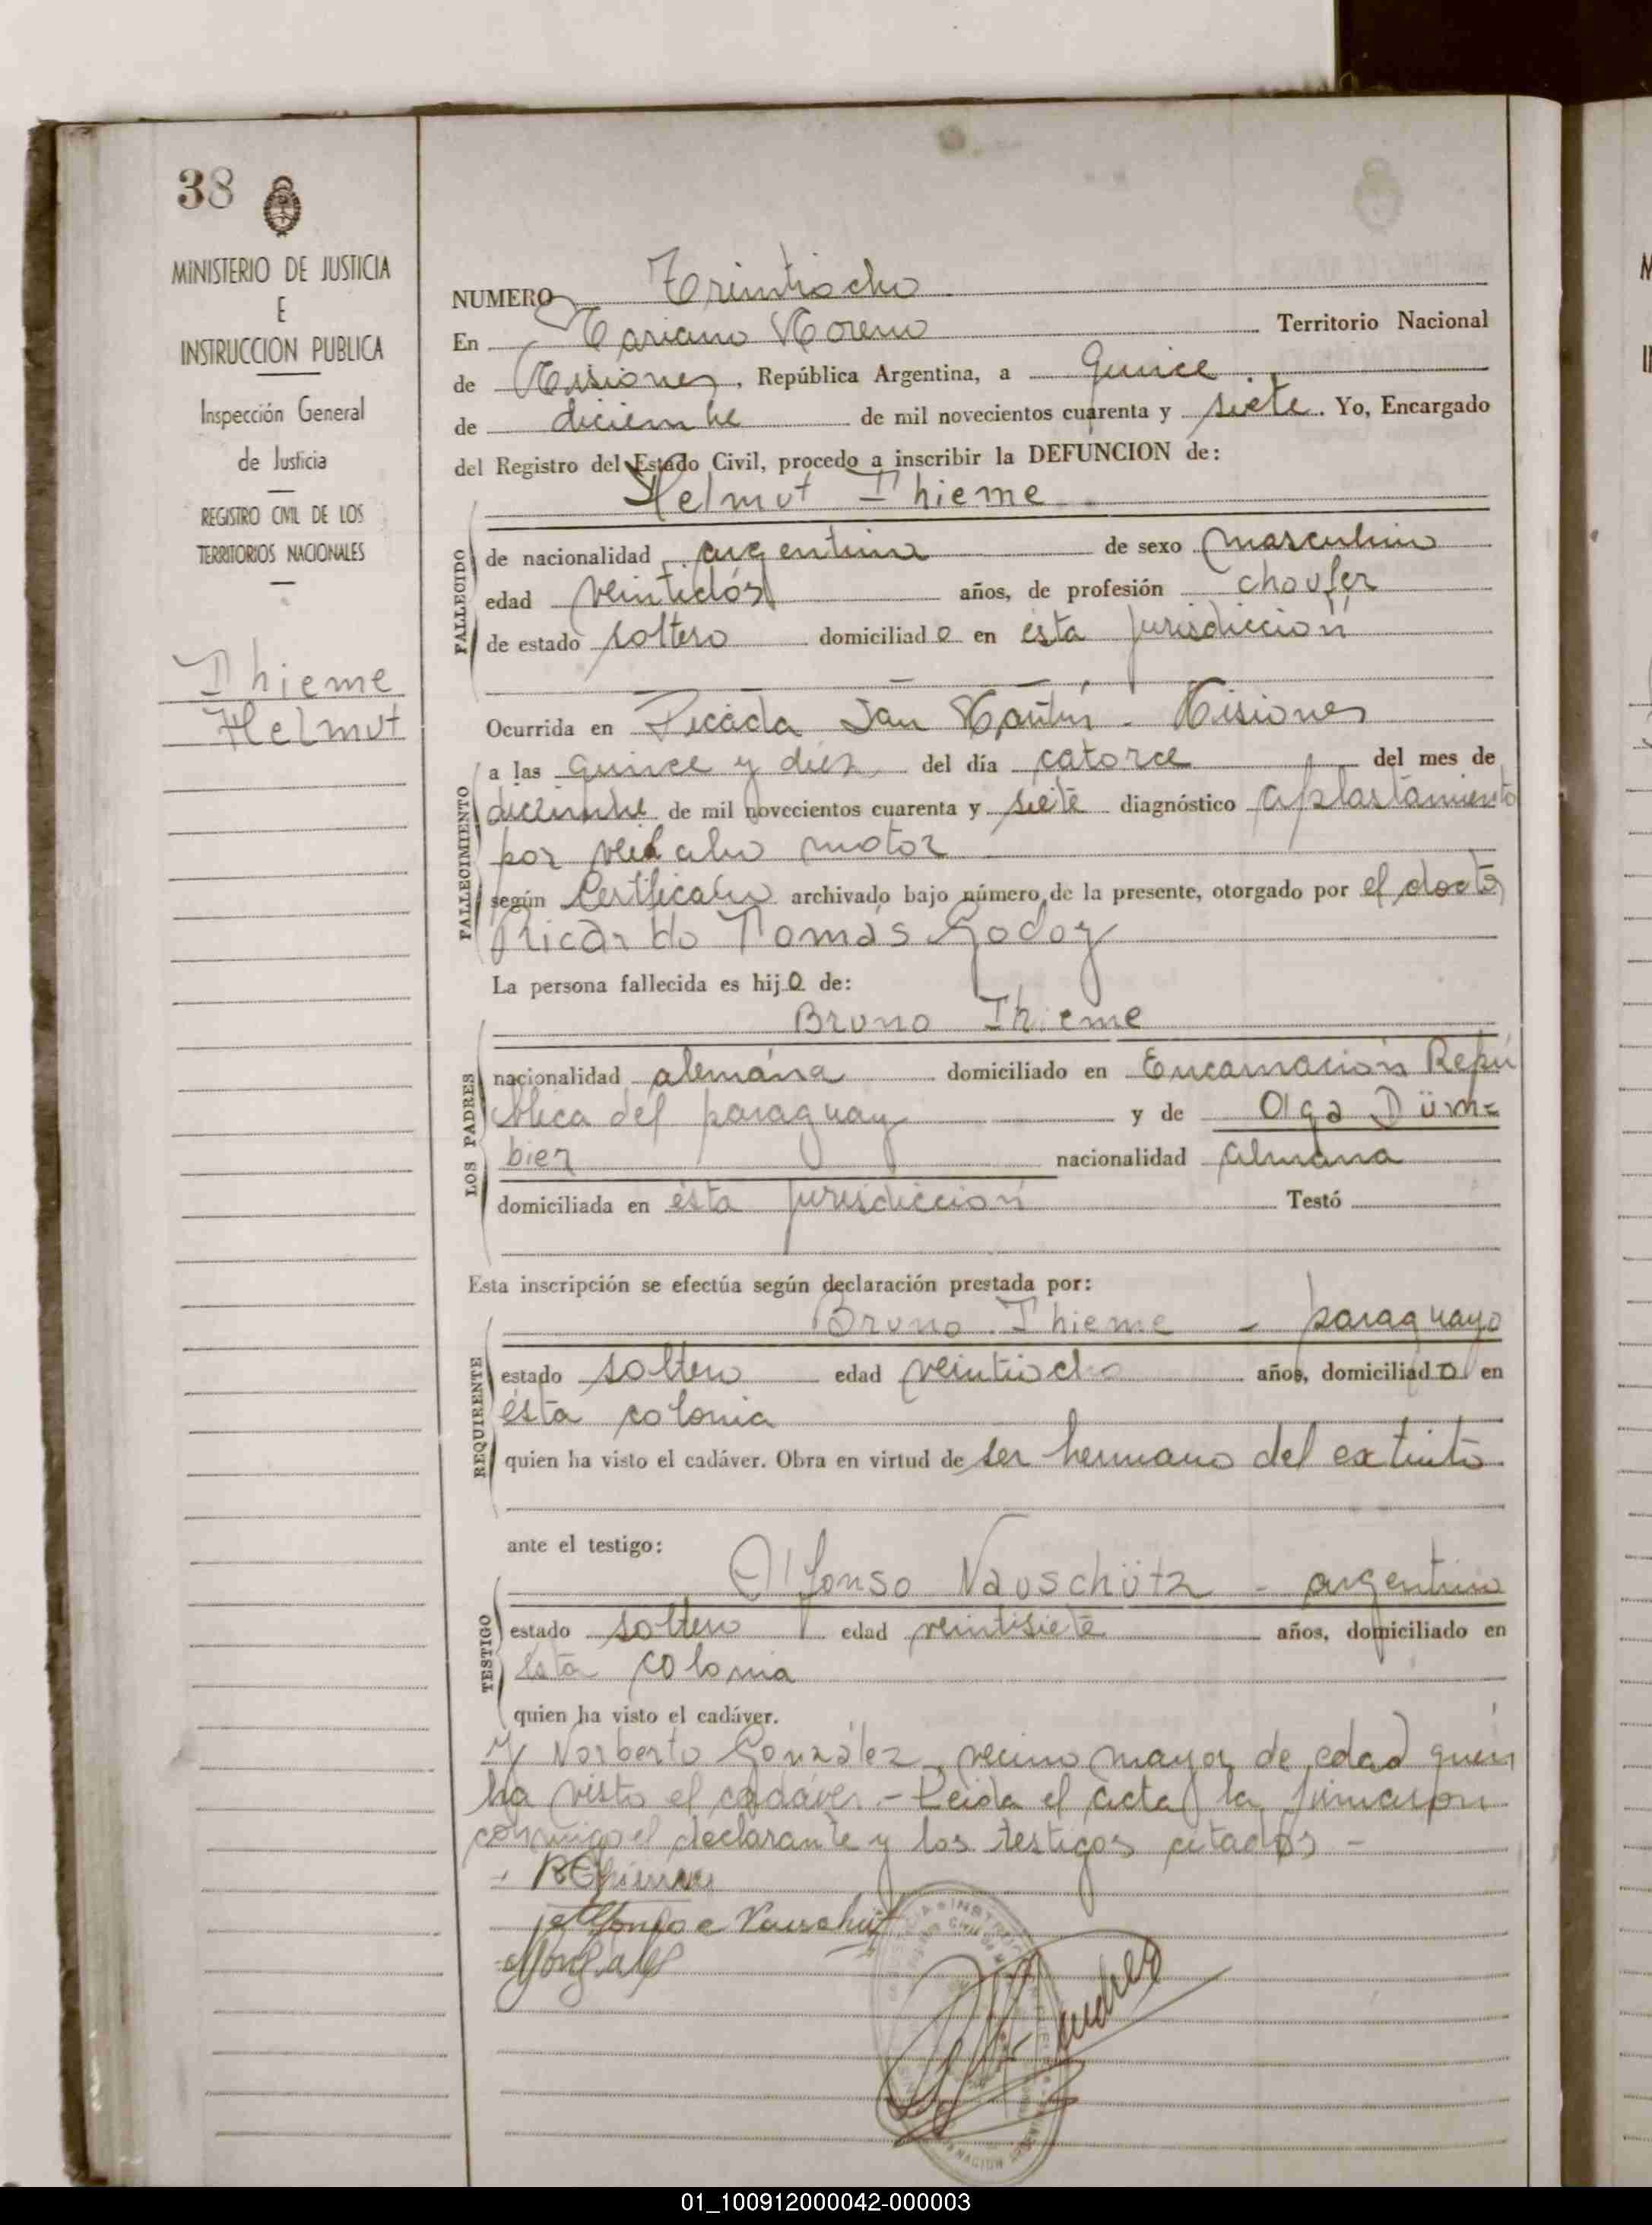 38
MINISTERIO DE JUSTICIA
E
INSTRUCCION PUBLICA
Inspección General
de Justicia
REGISTRO CIVIL DE LOS
TERRITORIOS NACIONALES
Thieme
Helmut
NUMERO Treintiocho
En Mariano Moreno Territorio Nacional
de Misiones, República Argentina, a quince
de diciembre de mil novecientos cuarenta y siete. Yo, Encargado
del Registro del Estado Civil, procedo a inscribir la DEFUNCION de:
Helmut Thieme
FALLECIDO
de nacionalidad argentina de sexo masculino
edad veintidós años, de profesión choufer
de estado soltero domiciliado en ésta jurisdicción
FALLECIMIENTO
Ocurrida en Picada San Martín - Misiones
a las quince y diez del día catorce del mes de
diciembre de mil novecientos cuarenta y siete diagnóstico aplastamiento
por veiculo motor
según Certificado archivado bajo número de la presente, otorgado por el doctor
Ricardo Tomás Godoy
La persona fallecida es hijo de:
LOS PADRES
Bruno Thieme
nacionalidad alemána domiciliado en Encarnación Repú
blica del paraguay y de Olga Düm=
bier nacionalidad alemana
domiciliada en ésta jurisdicción Testó
Esta inscripción se efectúa según declaración prestada por:
REQUIRENTE
Bruno Thieme - paraguayo
estado soltero edad veintiocho años, domiciliado en
ésta colonia
quien ha visto el cadáver. Obra en virtud de ser hermano del extinto
ante el testigo:
TESTIGO
Alfonso Nauschütz - argentino
estado soltero edad veintisiete años, domiciliado en
ésta colonia
quien ha visto el cadáver.
y Norberto González, vecino mayor de edad quien
ha visto el cadáver. - Leida el acta la firmaron
conmigo el declarante y los testigos citados -
BThieme
Alfonso Nauschütz
NGonzalez
01_100912000042-000003